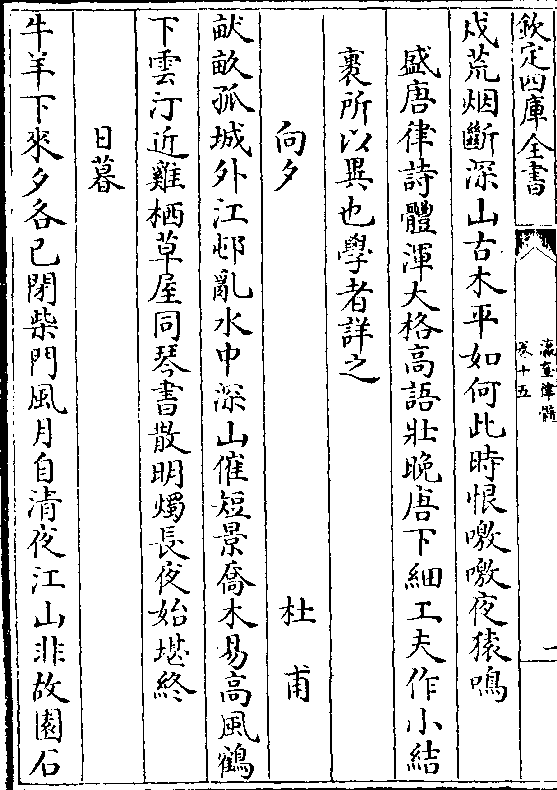 欽定四庫全書
瀛奎律髓
卷十五
一
戍荒烟斷深山古木平如何此時恨噭噭夜猿鳴
盛唐律詩體渾大格高語壯晚唐下細工夫作小結
裹所以異也學者詳之
向夕
杜甫
畎畝孤城外江邨亂水中深山催短景喬木易高風鶴
下雲汀近雞栖草屋同琴書散明燭長夜始堪終
日暮
牛羊下來夕各已閉柴門風月自清夜江山非故園石